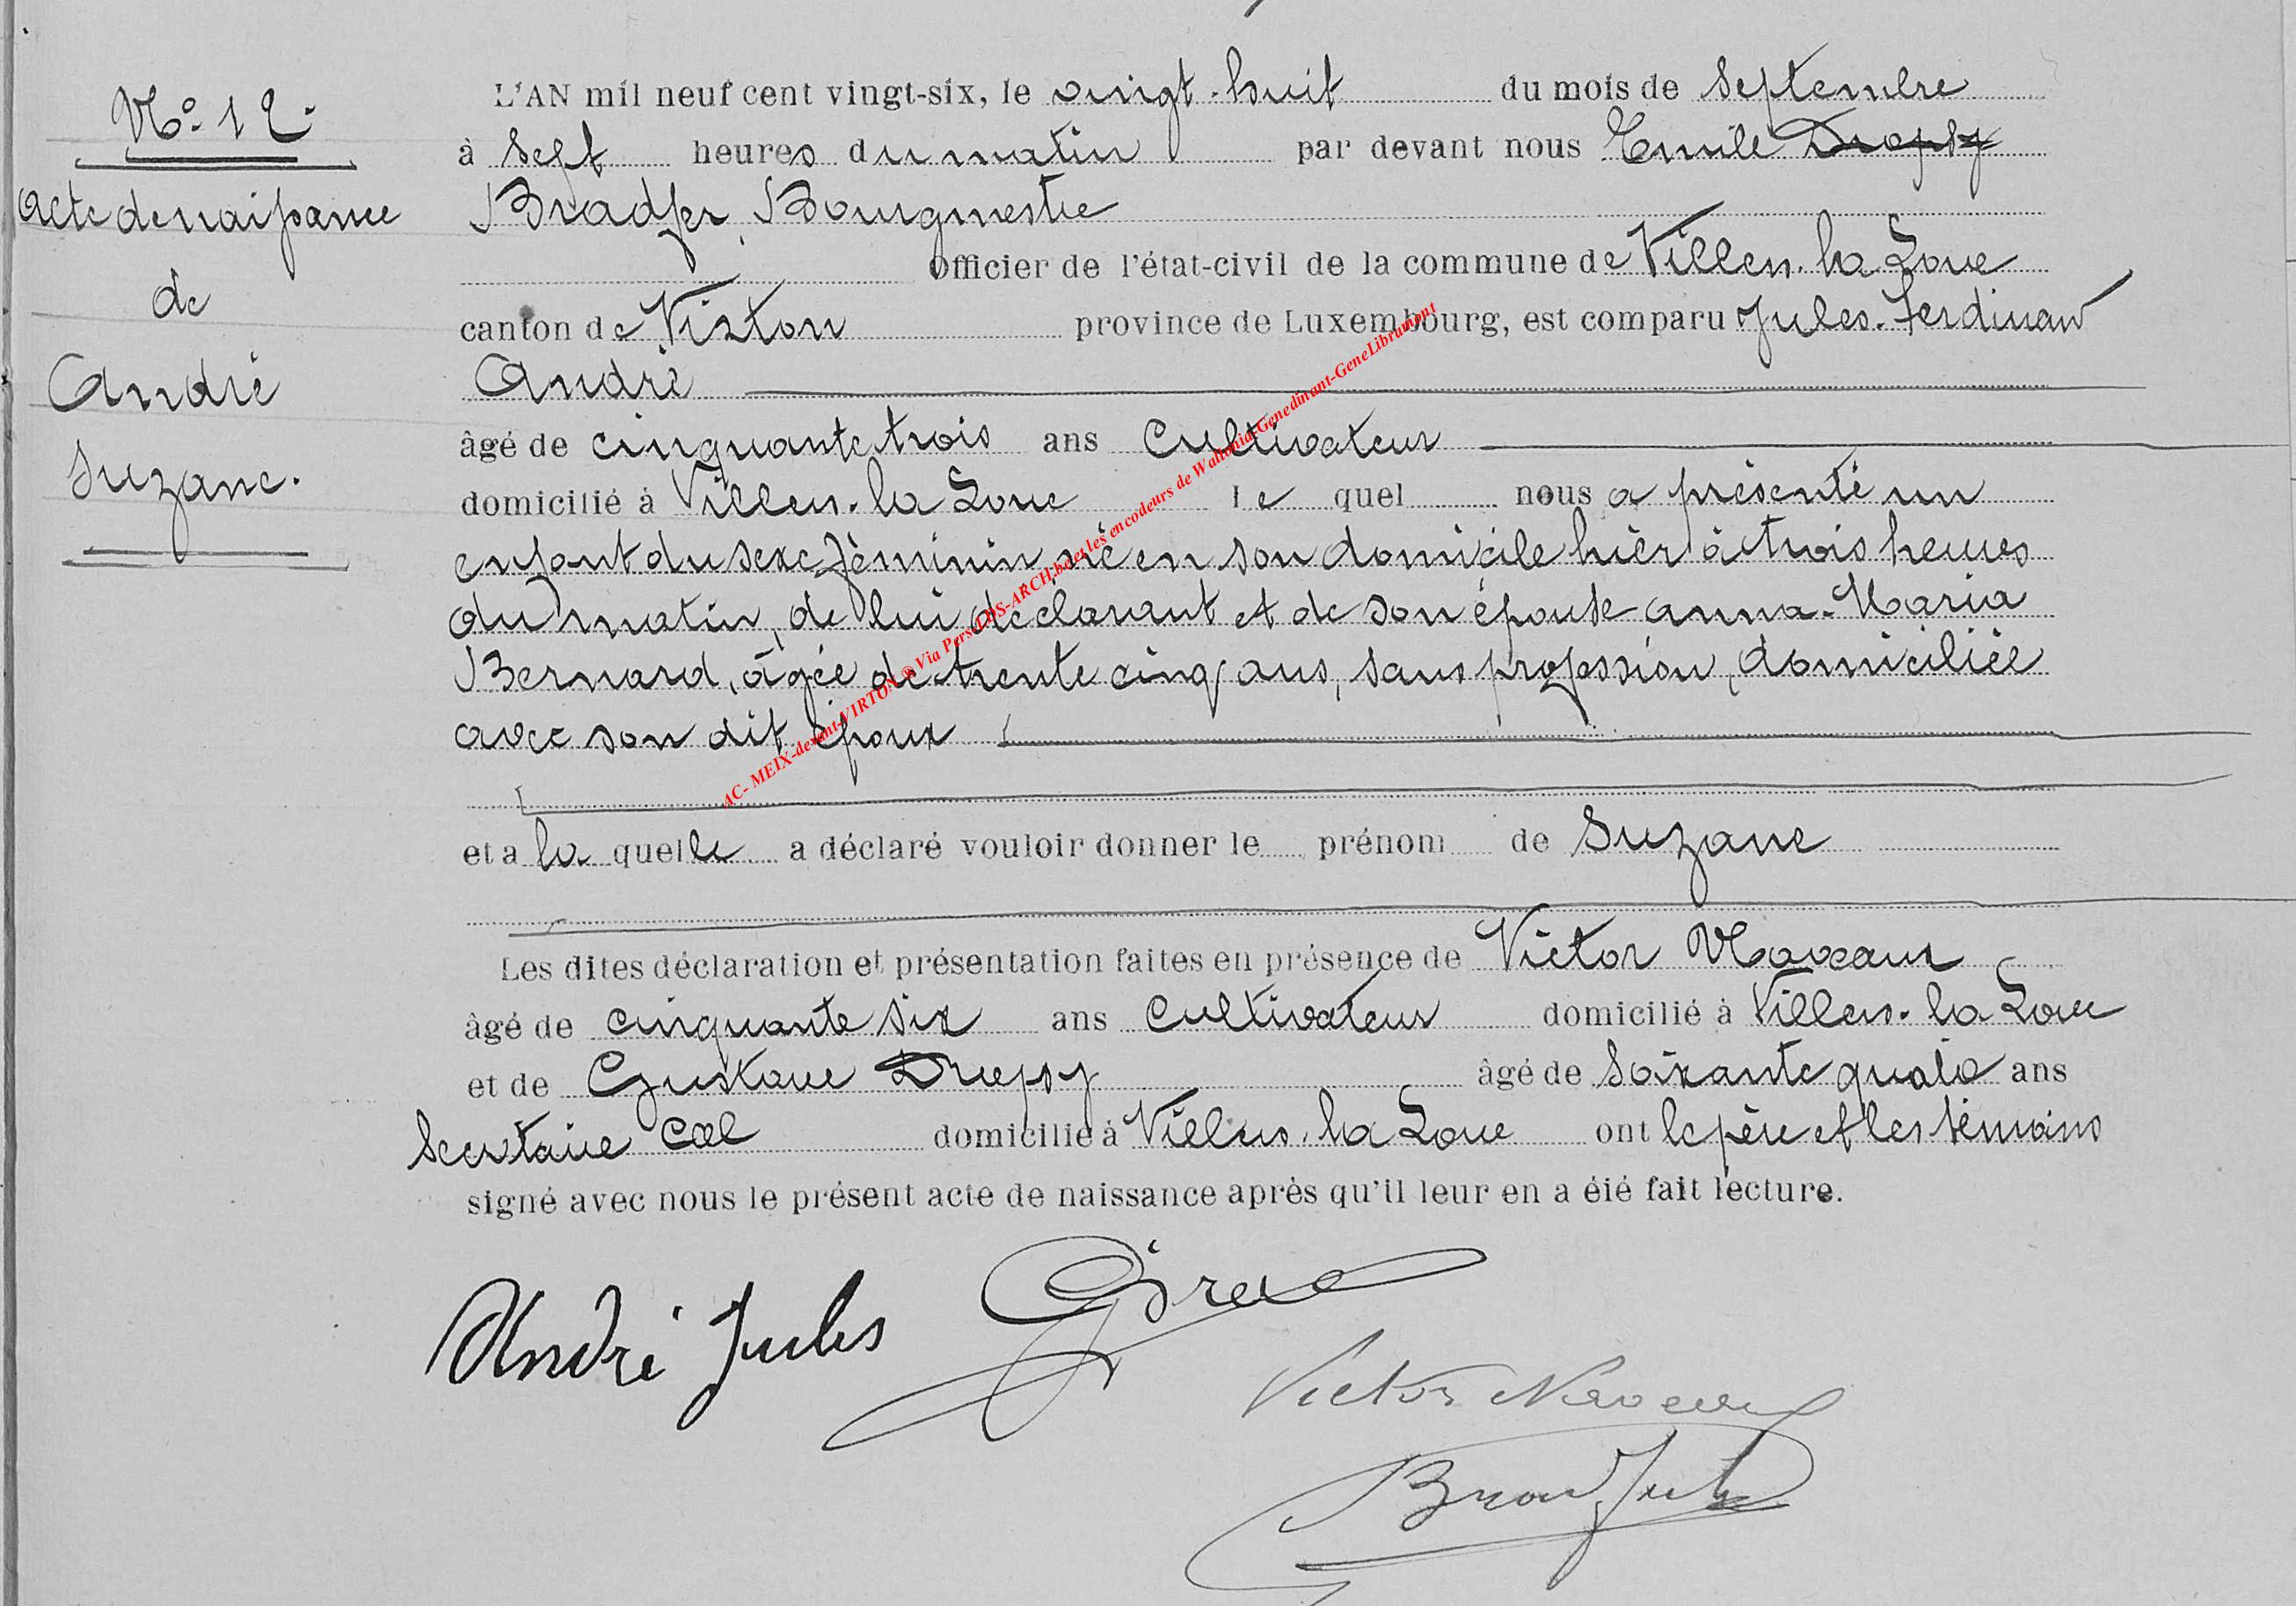 N° 12.
Acte de naissance
de
André
Suzane.
L'AN mil neuf cent vingt-six, le vingt-huit du mois de Septembre
à Sept heures du matin par devant nous Emile Dropsy
Bradfer, Bourgmestre
Officier de l'état-civil de la commune de Villers-la-Loue
canton de Virton province de Luxembourg, est comparu Jules-Ferdinand
André
âgé de cinquante trois ans Cultivateur
domicilié à Villers-la-Loue le quel nous a présenté un
enfant du sexe féminin né en son domicile hier à trois heures
du matin, de lui déclarant et de son épouse Anna-Maria
Bernard, âgée de trente cinq ans, sans profession, domiciliée
avec son dit époux
et a la quelle a déclaré vouloir donner le prénom de Suzane
Les dites déclaration et présentation faites en présence de Victor
âgé de cinquante six ans Cultivateur domicilié à Villers-la-Loue
et de Gustave Dropsy âgé de Soixante quatre ans
Secretaire Cal domicilié à Villers-la-Loue ont le père et les témoins
signé avec nous le présent acte de naissance après qu'il leur en a été fait lecture.
André Jules
Victor
Bradfer
AC- MEIX-devant-VIRTON @ Via Perso LDS-ARCH.be et les encodeurs de Wallonia-Genedinant-GeneLibramont